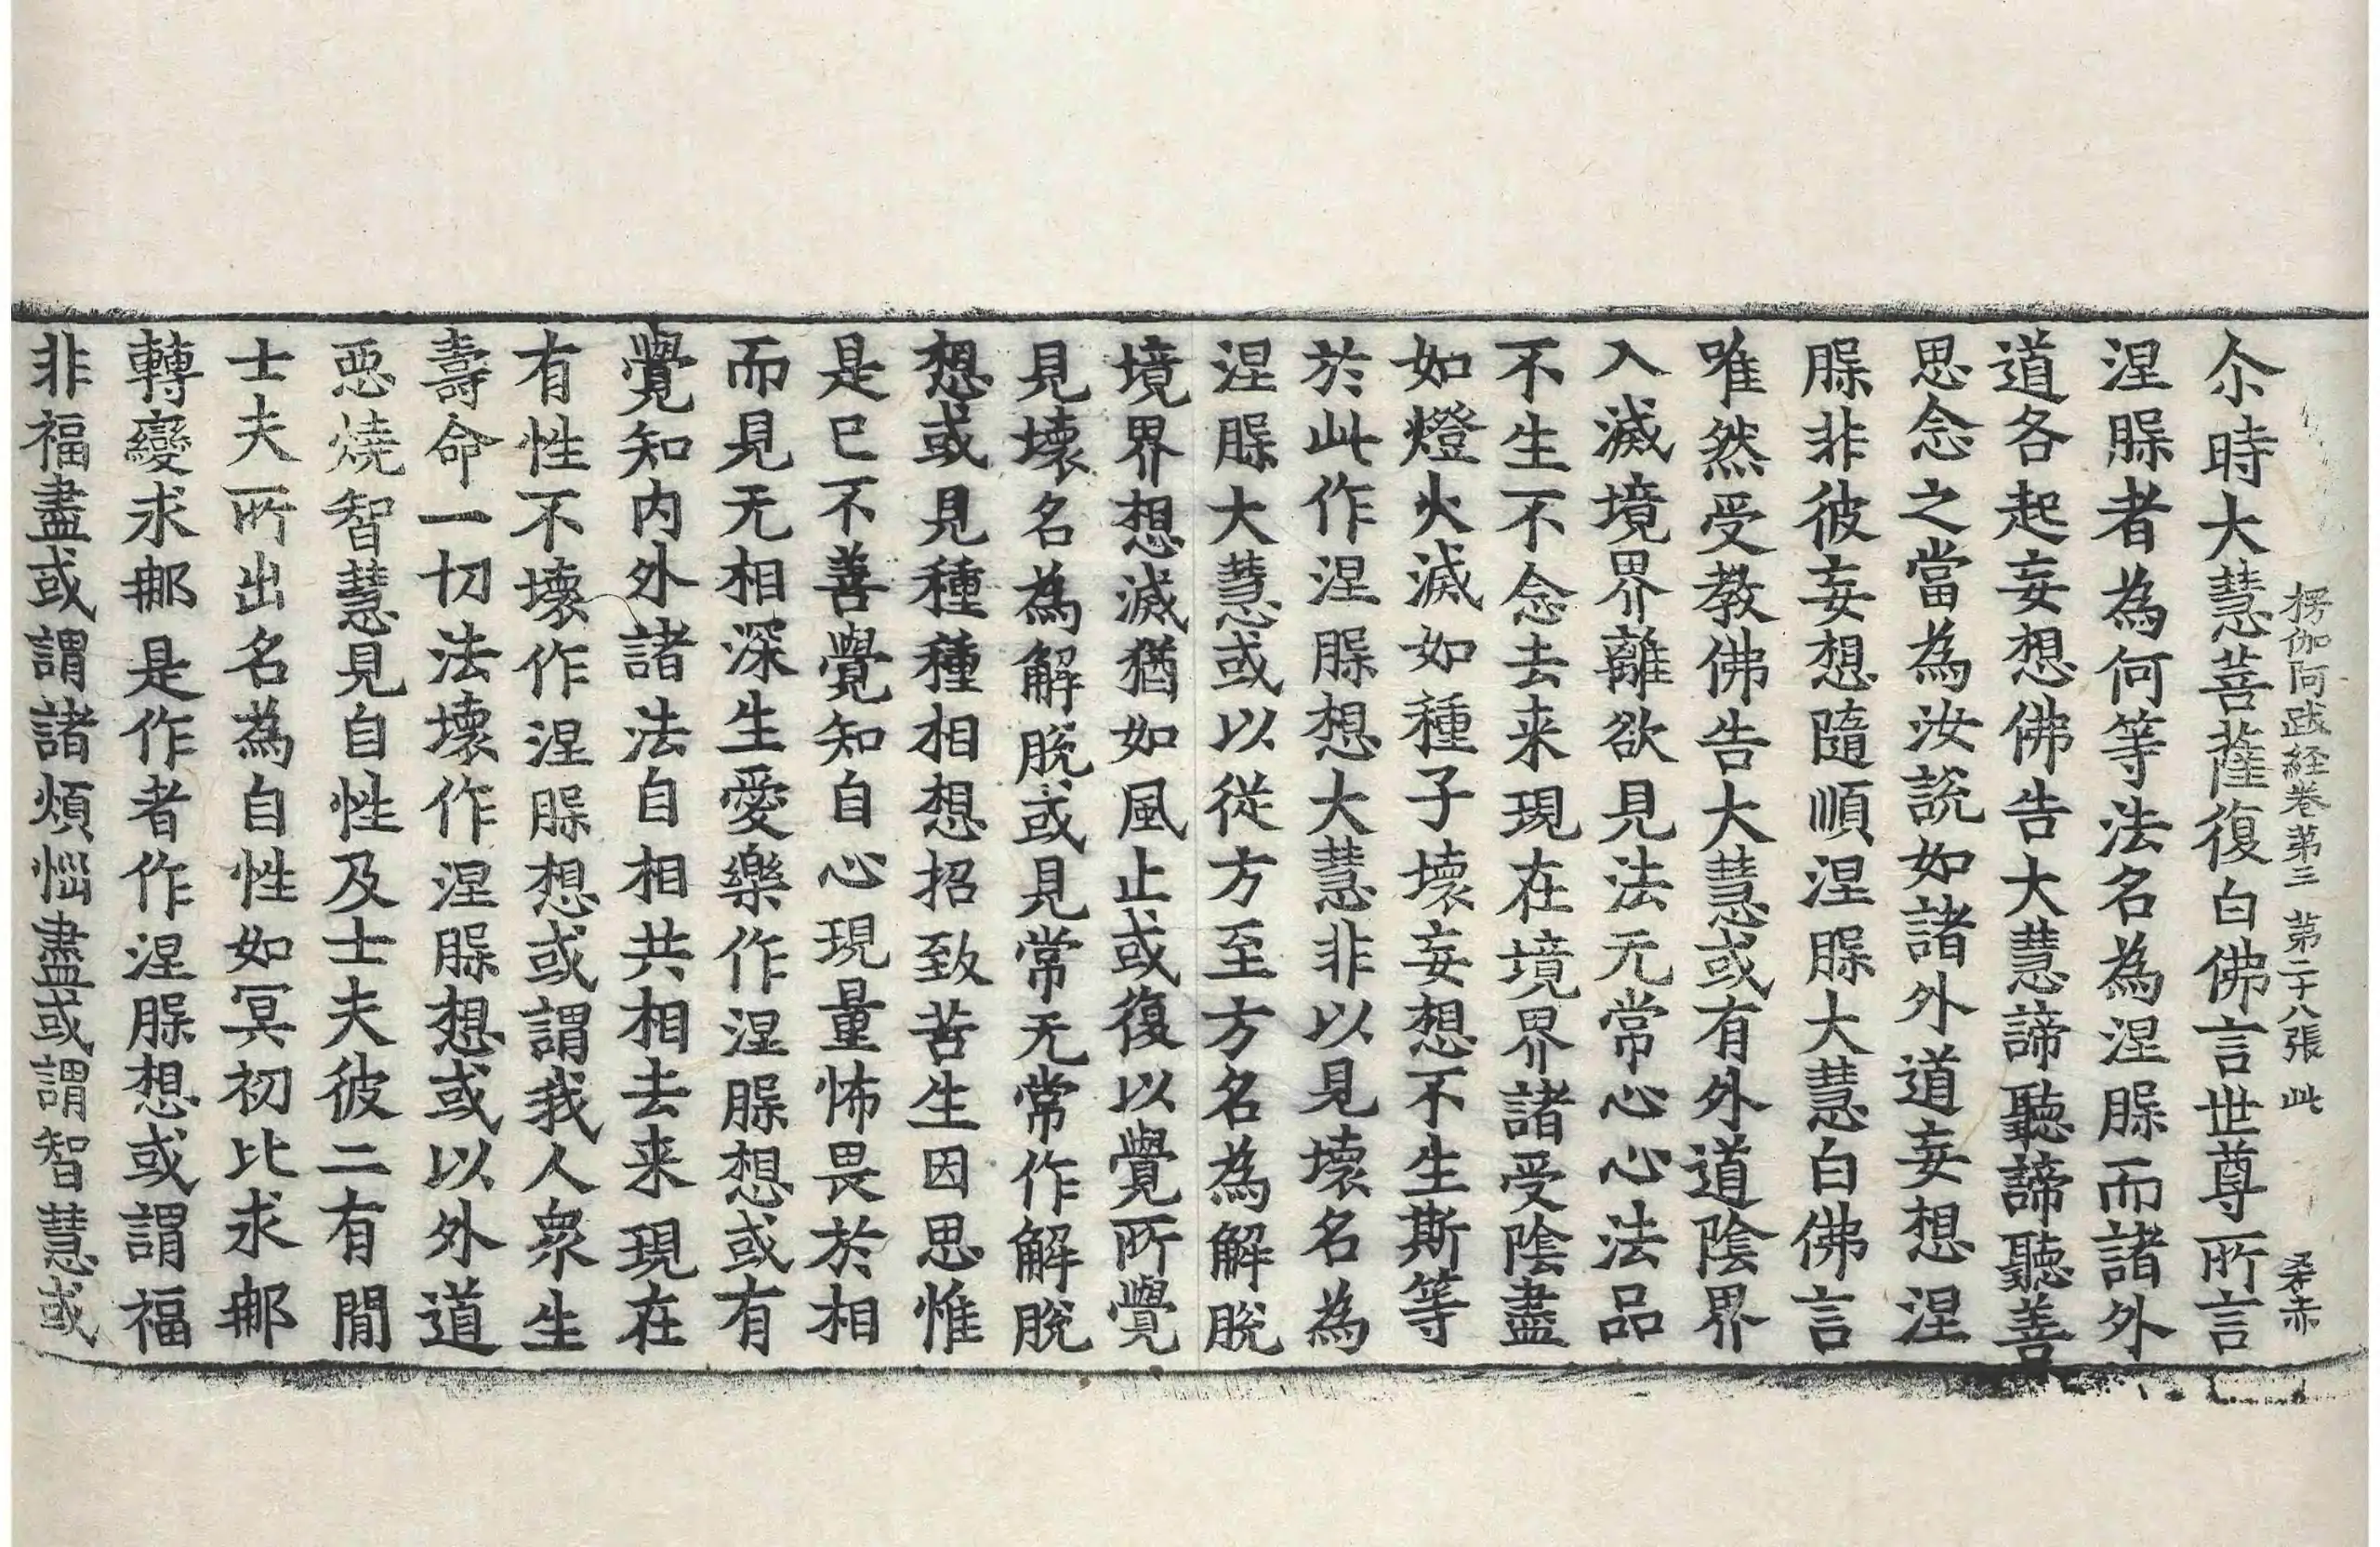 楞伽阿跋経卷第三 第二十八張 此
尒時大慧菩薩復白佛言世尊所言
涅槃者為何等法名為涅槃而諸外
道各起妄想佛告大慧諦聽諦聽善
思念之當為汝說如諸外道妄想涅
槃非彼妄想隨順涅槃大慧白佛言
唯然受教佛告大慧或有外道陰界
入滅境界離欲見法无常心心法品
不生不念去来現在境界諸受陰盡
如燈火滅如種子壞妄想不生斯等
於此作涅槃想大慧非以見壞名為
涅槃大慧或以從方至方名為解脫
境界想滅猶如風止或復以覺所覺
見壞名為解脫或見常无常作解脫
想或見種種相想招致苦生因思惟
是已不善覺知自心現量怖畏於相
而見无相深生愛樂作涅槃想或有
覺知内外諸法自相共相去来現在
有性不壞作涅槃想或謂我人衆生
壽命一切法壞作涅槃想或以外道
惡燒智慧見自性及士夫彼二有間
士夫所出名為自性如冥初比求那
轉變求那是作者作涅槃想或謂福
非福盡或謂諸煩惱盡或謂智慧或